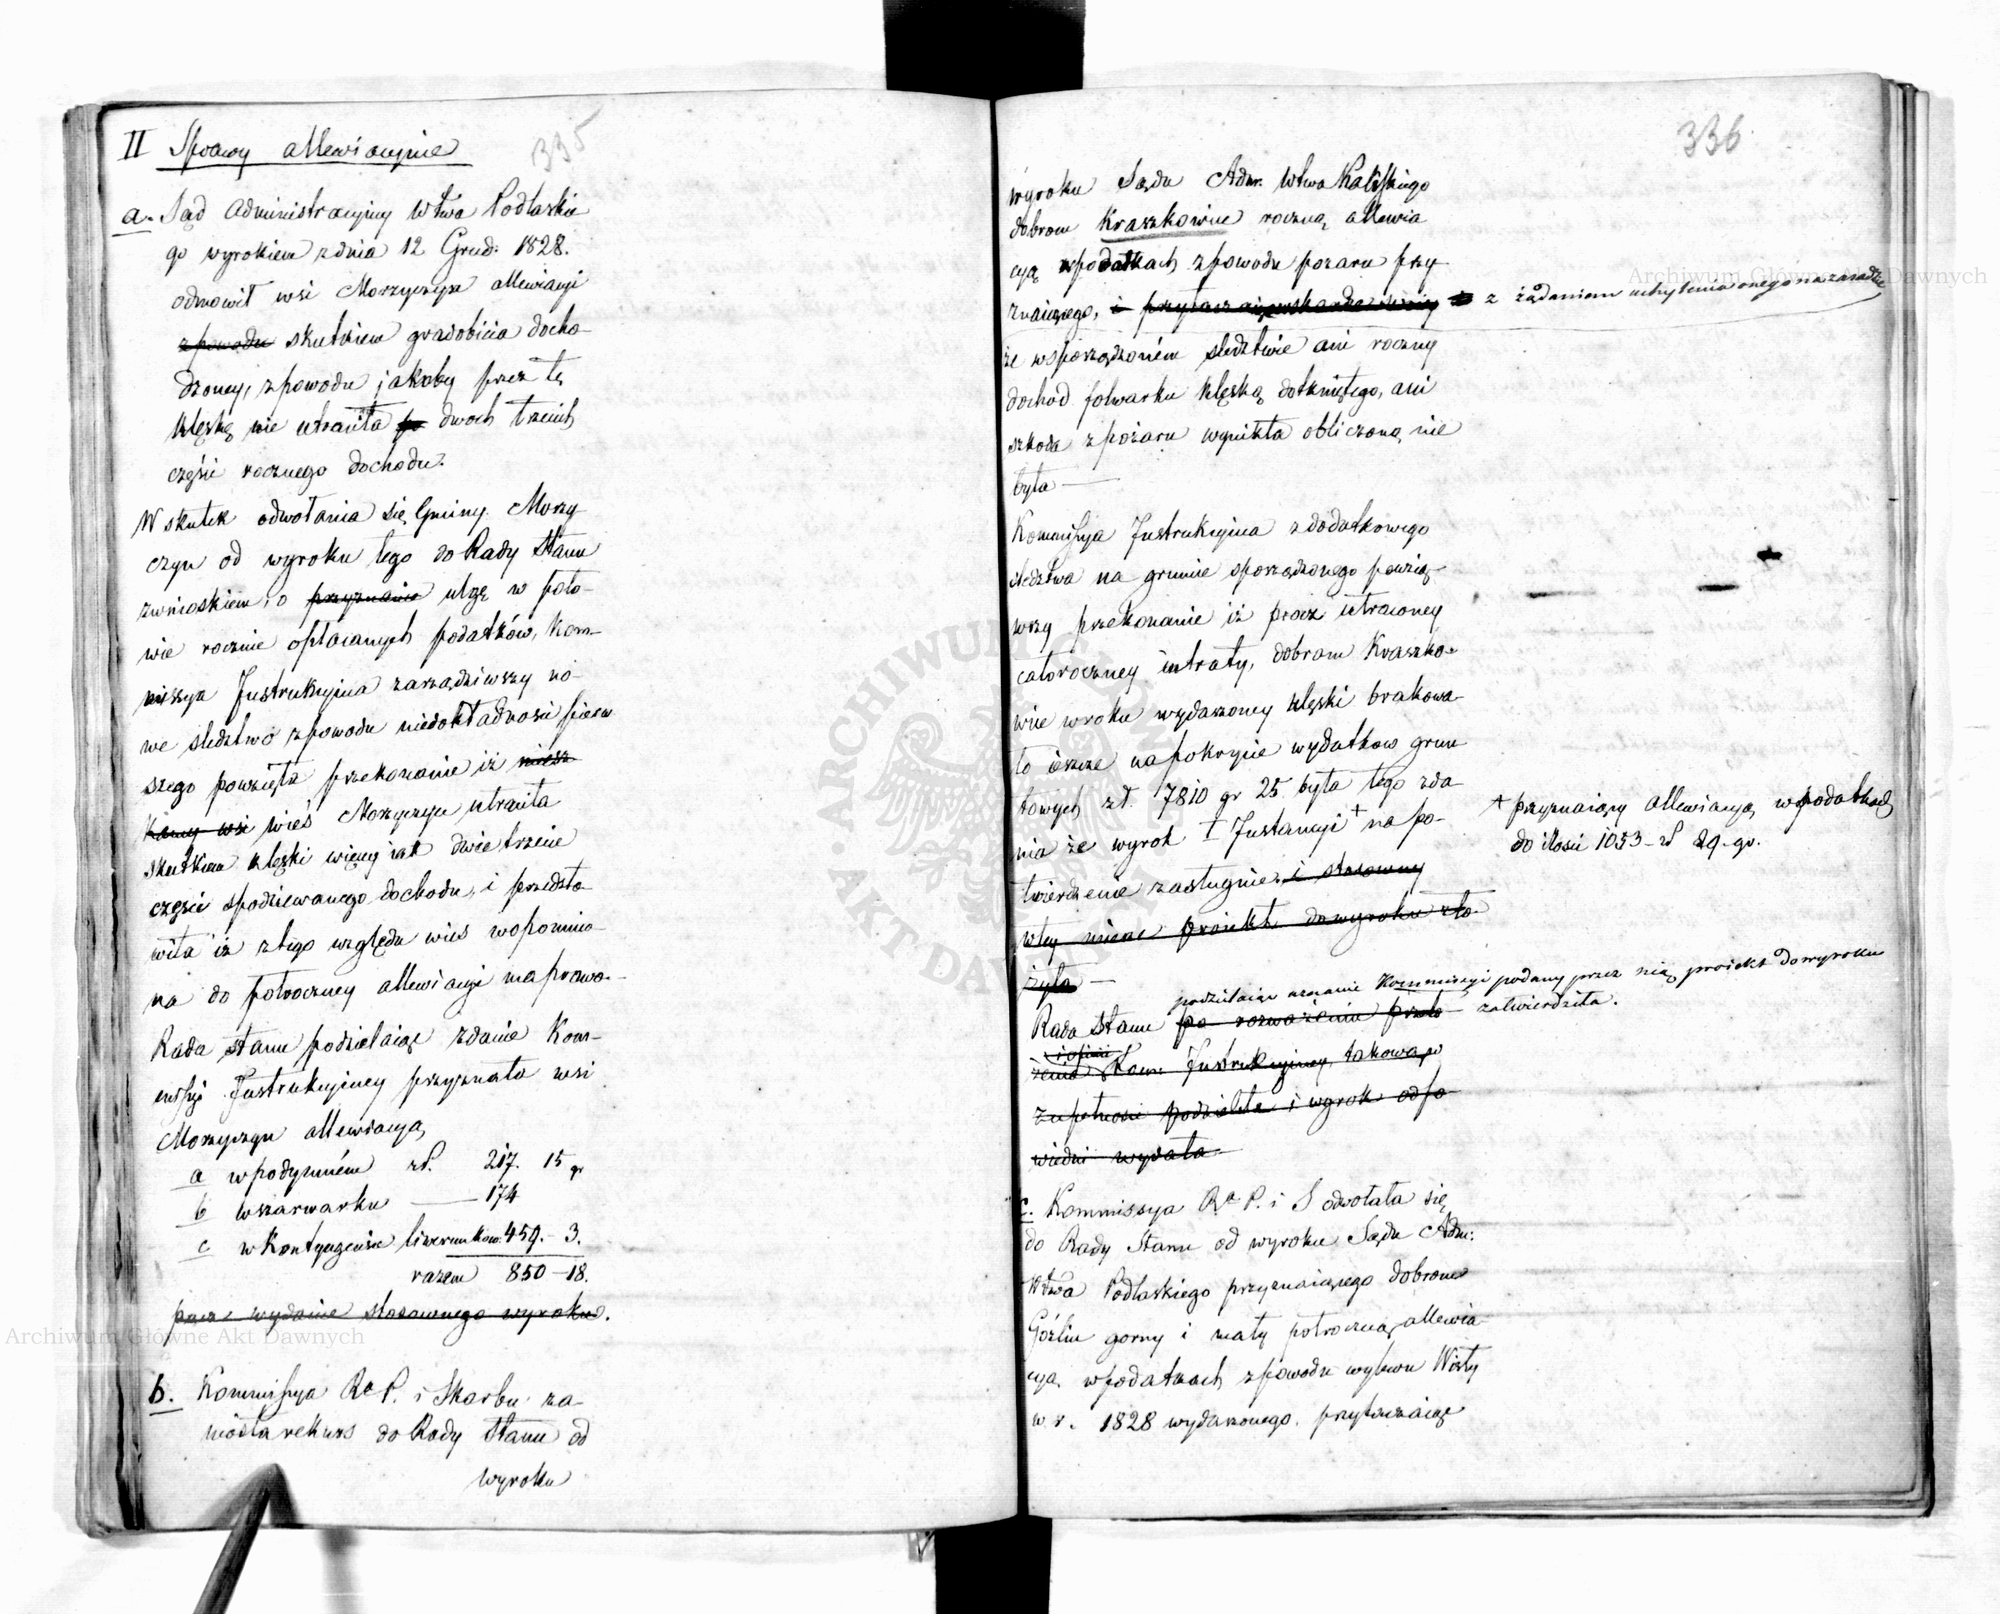 335
II Sprawy allewiacyine
a. Sąd Administracyiny Wtwa Podlaskie
go wyrokiem z dnia 12 Grud. 1828.
odmowił wsi Morzyczyn allewiacyi
z powodu skutkiem gradobicia docho-
dzoney, z powodu jakoby przez tę
klęskę nie utraciła po dwoch trzecich
części rocznego dochodu.
W skutek odwołania się Gminy Morzy
czyn od wyroku tego do Rady Stanu
z wnioskiem o przyznanie ulgę w poło-
wie rocznie opłacanych podatków, Kom-
missya Instrukcyina zarządziwszy no-
we sledztwo z powodu niedokładności pierw
szego powzięła przekonanie iż
wieś Morzyczyn utraciła
skutkiem klęski więcey iak dwie trzecie
części spodziewanego dochodu, i przedsta-
wiła iż z tego względu wieś wspomnio-
na do połroczney allewiacyi ma prawo.
Rada Stanu podzielaiąc zdanie Kom-
missyi Instrukcyiney przyznała wsi
Morzyczyn allewiacyą
a w podymném zł. 217. 15 gr
b w szarwarku — 174
c w Kontyngensie liwerunkow. 459. — 3.
razem 850 — 18.
przez wydanie stosownego wyroku.
b. Kommissya R. P. i Skarbu za-
niosła rekurs do Rady Stanu od
wyroku
336
wyroku Sądu Adm. Wtwa Kaliskiego
dobrom Kraszkowice roczną allewia
cyą w podatkach z powodu pożaru przy-
znaiącego, z żądaniem uchylenia onego na zasadzie
że w sporządzoném sledztwie ani roczny
dochod folwarku klęską dotkniętego, ani
szkoda z pożaru wynikła obliczoną nie
była —
Kommissya Instrukcyina z dodatkowego
sledztwa na gruncie sporządzonego powzią-
wszy przekonanie iż procz utraconey
całoroczney intraty, dobrom Kraszko-
wice w roku wydarzoney klęski brakowa-
ło ieszcze na pokrycie wydatkow grun
towych zł. 7810 gr 25 była tego zda
nia że wyrok I Instancyi + na po-
+ przyznaiący allewiacyą w podatkach
do ilości 1053 — zł 29. gr.
twierdzenie zasługuie. i stosowny
w tey mierze proiekt do wyroku zło-
żyła —
podzielaiąc zdanie Kommissyi podany przez nią proiekt do wyroku
Rada Stanu po rozważeniu przeło- zatwierdziła.
i opinii
żenia Kom. Instrukcyiney, takową w
zupełności podzieliła i wyrok odpo-
wiedni wydała —
c. Kommissya R. P. i S odwołała się
do Rady Stanu od wyroku Sądu Adm:
Wtwa Podlaskiego przyznaiącego dobrom
Goźlin gorny i mały połroczną allewia
cyą w podatkach z powodu wylewu Wisły
w r. 1828 wydarzonego, przytaczaiąc
Archiwum Główne Akt Dawnych